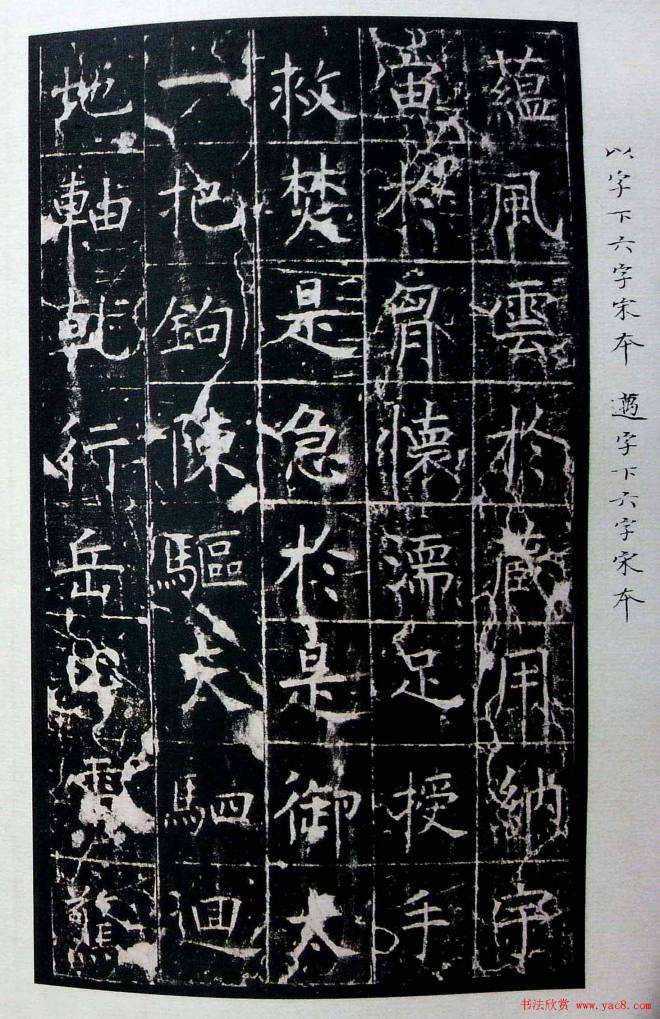 以字下六字宋本 邁字下六字宋本
蘊風雲於藏用納宇
宙於胷懷濡足授手
救焚是急於是御太
一把鉤陳驅天駟迴
地軸乾行岳驚
书法欣赏 www.yac8.com